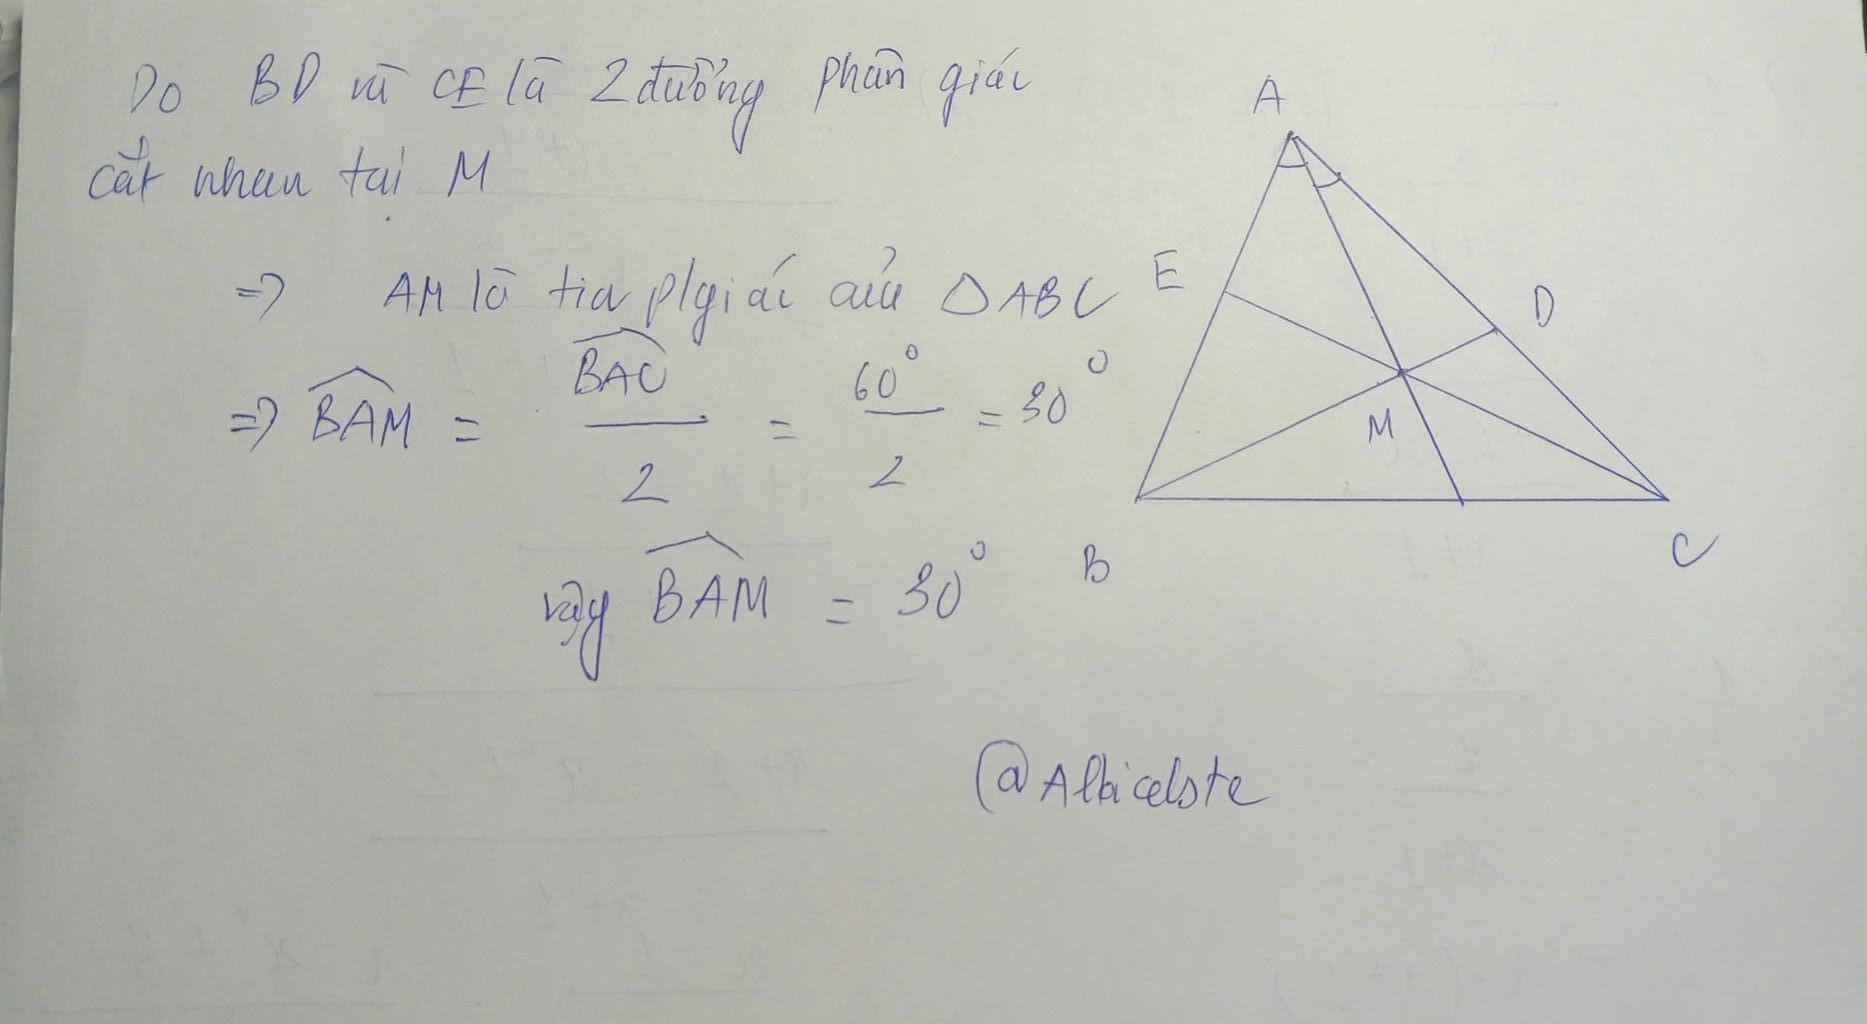 Do BD và CE là 2 đường phân giác
cắt nhau tại M
=> AM là tia p/giác của △ABC
=> BAM = BAC / 2 = 60° / 2 = 30°
vậy BAM = 30°
@Albicelste
A
E
D
M
B
C